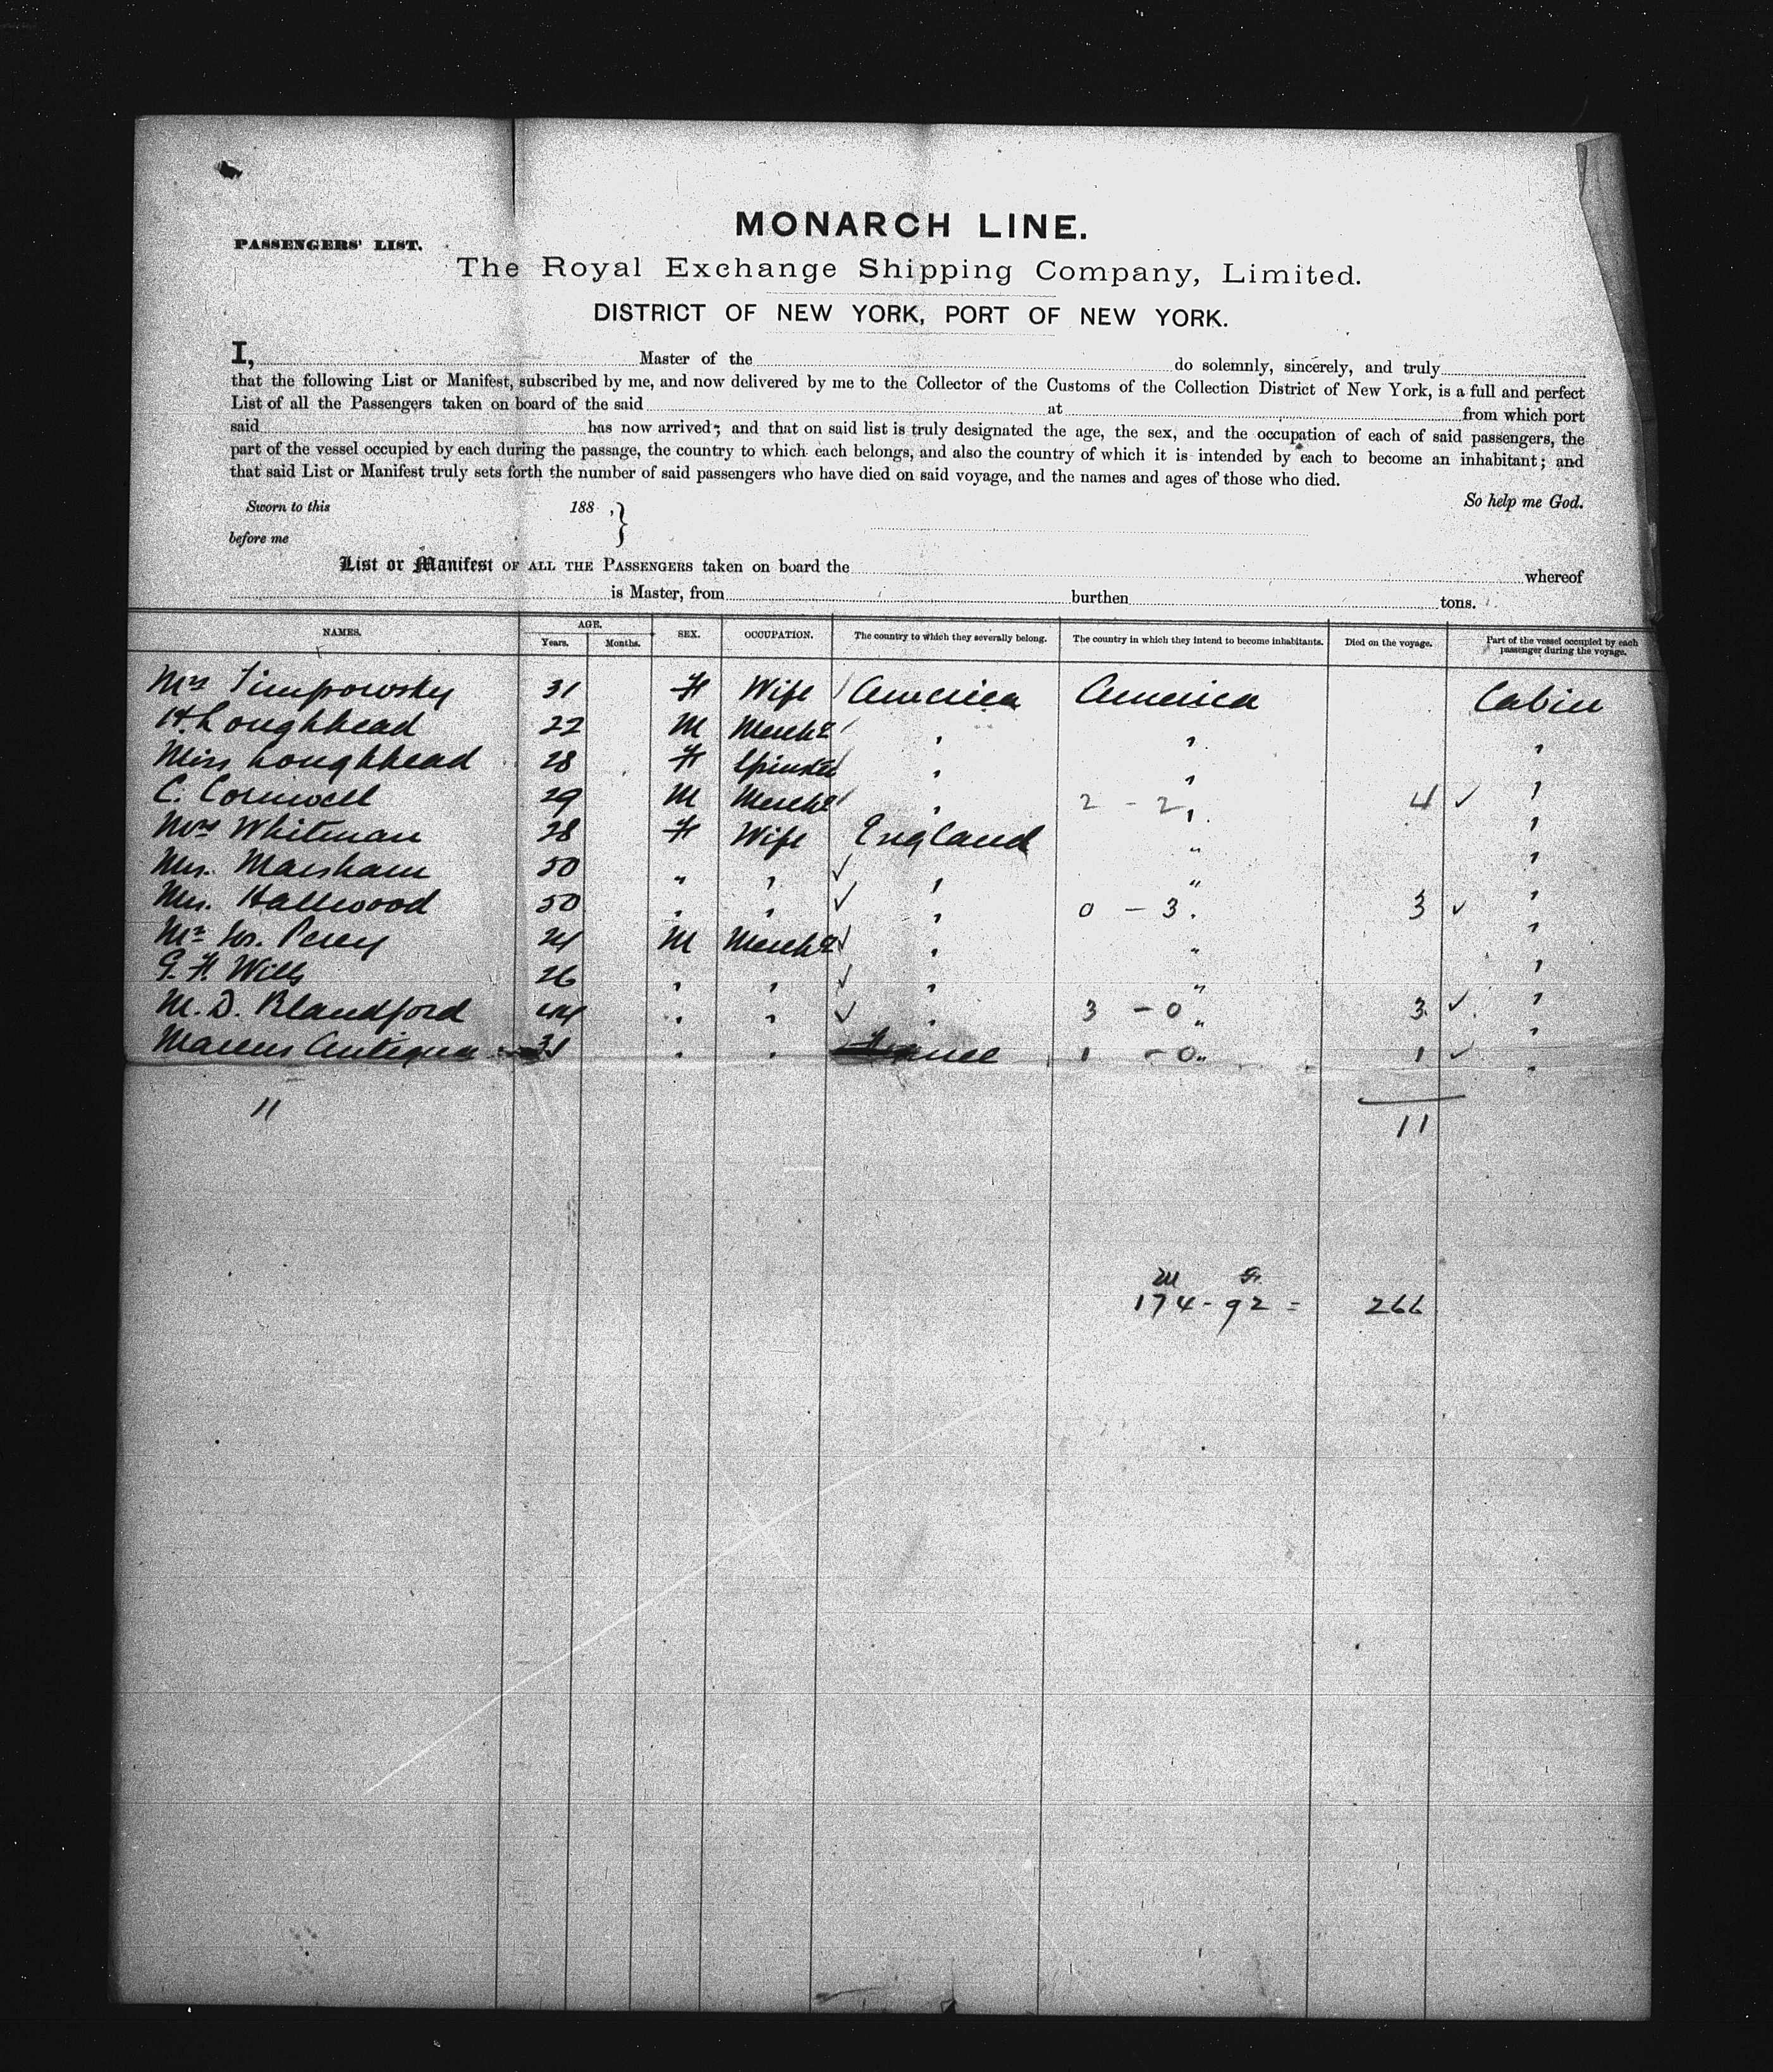 MONARCH LINE.
PASSENGERS' LIST.
The Royal Exchange Shipping Company, Limited.
DISTRICT OF NEW YORK, PORT OF NEW YORK.
I, Master of the do solemnly, sincerely, and truly
that the following List or Manifest, subscribed by me, and now delivered by me to the Collector of the Customs of the Collection District of New York, is a full and perfect
List of all the Passengers taken on board of the said at from which port
said has now arrived; and that on said list is truly designated the age, the sex, and the occupation of each of said passengers, the
part of the vessel occupied by each during the passage, the country to which each belongs, and also the country of which it is intended by each to become an inhabitant; and
that said List or Manifest truly sets forth the number of said passengers who have died on said voyage, and the names and ages of those who died.
So help me God.
Sworn to this 188 ,}
before me
List or Manifest OF ALL THE PASSENGERS taken on board the whereof
is Master, from burthen tons.
NAMES. AGE. Years. Months. SEX. OCCUPATION. The country to which they severally belong. The country in which they intend to become inhabitants. Died on the voyage. Part of the vessel occupied by each passenger during the voyage.
Mrs Timpowsky 31 F Wife America America Cabin
H. Loughhead 22 M Mercht " " "
Miss Loughhead 28 F Spinster " " "
C. Cornwell 29 M Mercht " 2 - 2 " 4 ✓ "
Mrs Whitman 28 F Wife England " "
Mrs. Marsham 50 " " ✓ " " "
Mrs. Hallwood 50 " " ✓ " 0 - 3 " 3 ✓ "
Mr Percy 24 M Mercht ✓ " " "
G. F. Wills 26 " " ✓ " " "
M. D. Blandford 44 " " ✓ " 3 - 0 " 3 ✓ "
Marcus Antiqua 31 " " France 1 - 0 " 1 ✓ "
11 11
M F.
174 - 92 = 266